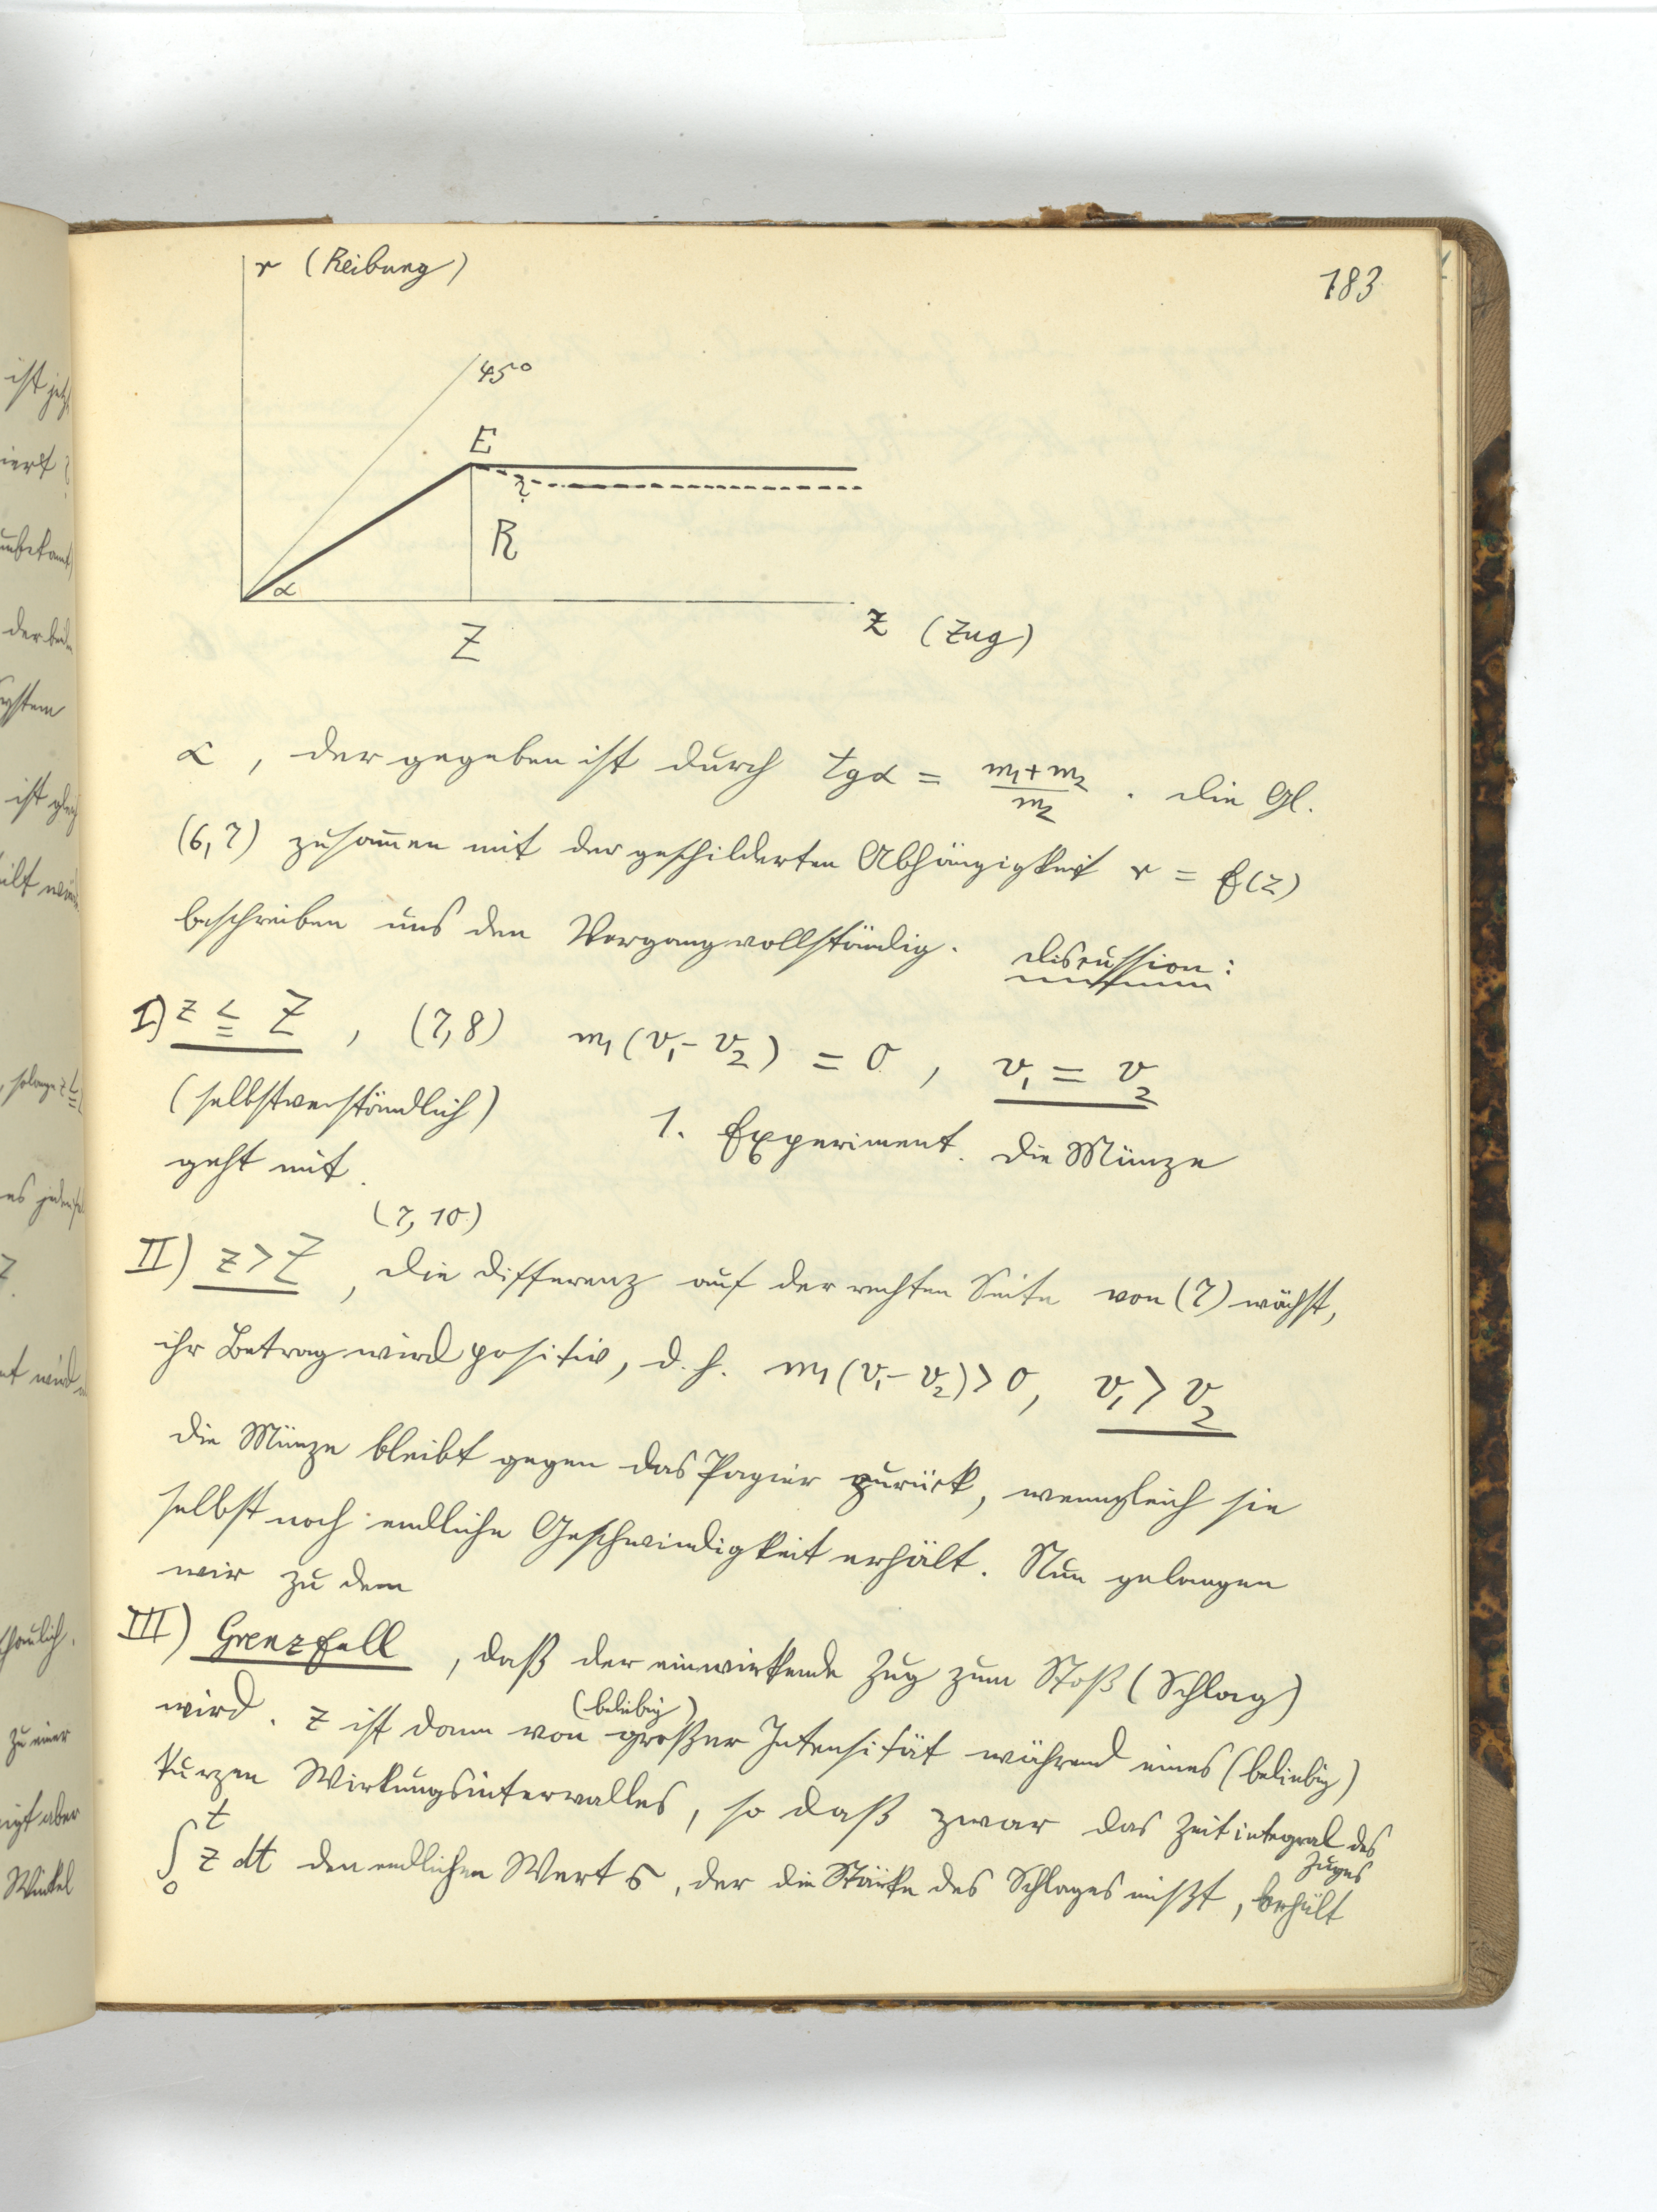 r (Reibung)
183
45°
E
?
R
α
Z
z (Zug)
α, der gegeben ist durch tgα = (m₁+m₂)/m₂. Die Gl.
(6,7) zusam̅en mit der geschilderten Abhängigkeit r = f(z)
beschreiben uns den Vorgang vollständig. Discussion:
I) z ≦ Z, (7,8) m₁(v₁-v₂) = 0, v₁ = v₂
(selbstverständlich) 1. Experiment. Die Münze
geht mit.
(7, 10)
II) z > Z, Die Differenz auf der rechten Seite von (7) wächst,
ihr Betrag wird positiv, d.h. m₁(v₁-v₂)>0, v₁ > v₂
Die Münze bleibt gegen das Papier zurück, wenngleich sie
selbst noch endliche Geschwindigkeit erhält. Nun gelangen
wir zu dem
III) Grenzfall, daß der einwirkende Zug zum Stoß (Schlag)
wird. z ist dann von (beliebig) großer Intensität während eines (beliebig)
kurzen Wirkungsintervalles, so daß zwar das Zeitintegral des Zuges
∫₀ᵗ z dt den endlichen Wert S, der die Stärke des Schlages mißt, behält
ist jetzt
der bei
System
ist gleich
, solange z ≦
zu einer
aber
Winkel